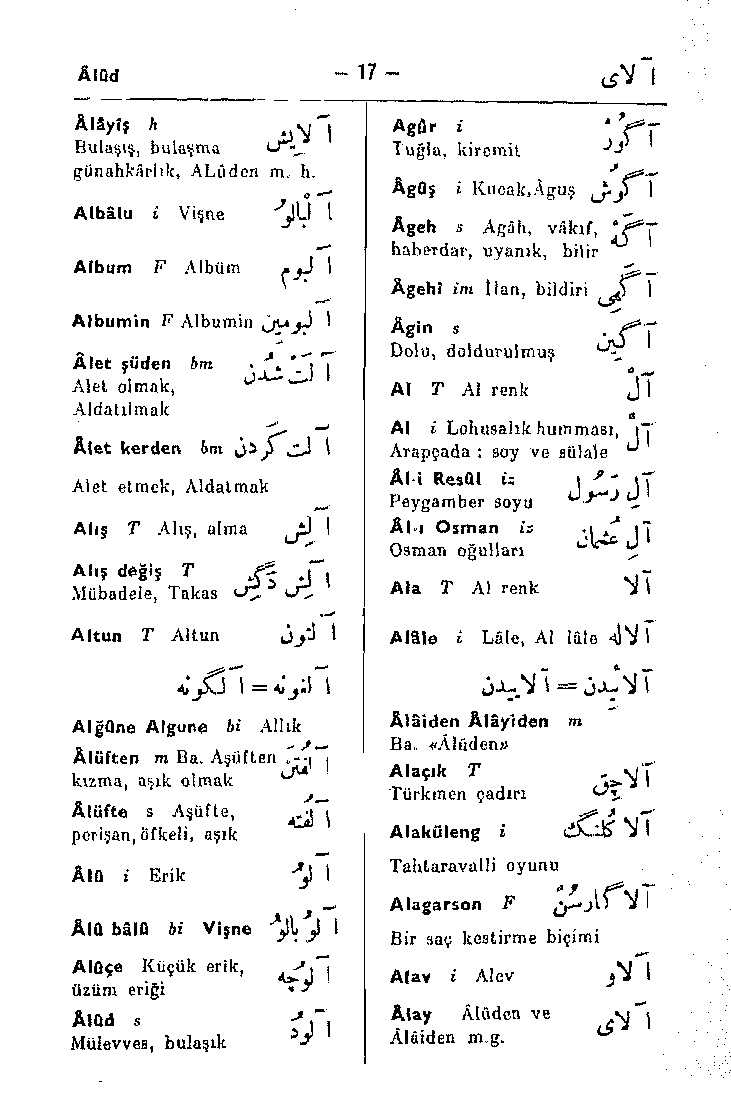 Âlûd – 17 – آلای
Agûr i آگُور
Tuğla, kiremit
Âgûş i Kucak,Âguş آگوُش
Âgeh s Agâh, vâkıf, آگَه
haberdar, uyanık, bilir
Âgehî im İlan, bildiri آگَهی
Âgin s آگین
Dolu, doldurulmuş
Al T Al renk آلْ
Al i Lohusalık humması, آلْ
Arapçada : soy ve sülale
Âl-i Resûl is آلِ رَسُول
Peygamber soyu
Âl-ı Osman is آلِ عُثمان
Osman oğulları
Ala T Al renk آلا
Alâle i Lâle, Al lâle آلاله
آلائیدن = آلاییدن
Âlâiden Âlâyiden m
Ba. «Âlûden»
Alaçık T آلاچق
Türkmen çadırı
Alaküleng i آلاکُلَنگ
Tahtaravalli oyunu
Alagarson F آلاگارسُنْ
Bir saç kestirme biçimi
Alav i Alev آلاو
Âlay Âlûden ve آلای
Âlâiden m.g.
Âlâyîş h آلایش
Bulaşış, bulaşma
günahkârlık, ALûden m. h.
Albâlu i Vişne آلْبالوُ
Album F Albüm آلبوم
Albumin F Albumin آلبومین
Âlet şüden bm آلَت شُدَن
Alet olmak,
Aldatılmak
Âlet kerden bm آلت کَردن
Alet etmek, Aldatmak
Alış T Alış, alma آلِش
Alış değiş T آلِش دَگِش
Mübadele, Takas
Altun T Altun آلتون
آلغونه = آلگونه
Alğûne Algune bi Allık
Âlüften m Ba. Aşüften آلُفتَن
kızma, aşık olmak
Âlüfte s Aşüfte, آلُفته
perişan, öfkeli, aşık
Âlû i Erik آلوُ
Âlû bâlû bi Vişne آلوُبالوُ
Alûçe Küçük erik, آلوُچه
üzüm eriği
Âlûd s آلوُد
Mülevves, bulaşık